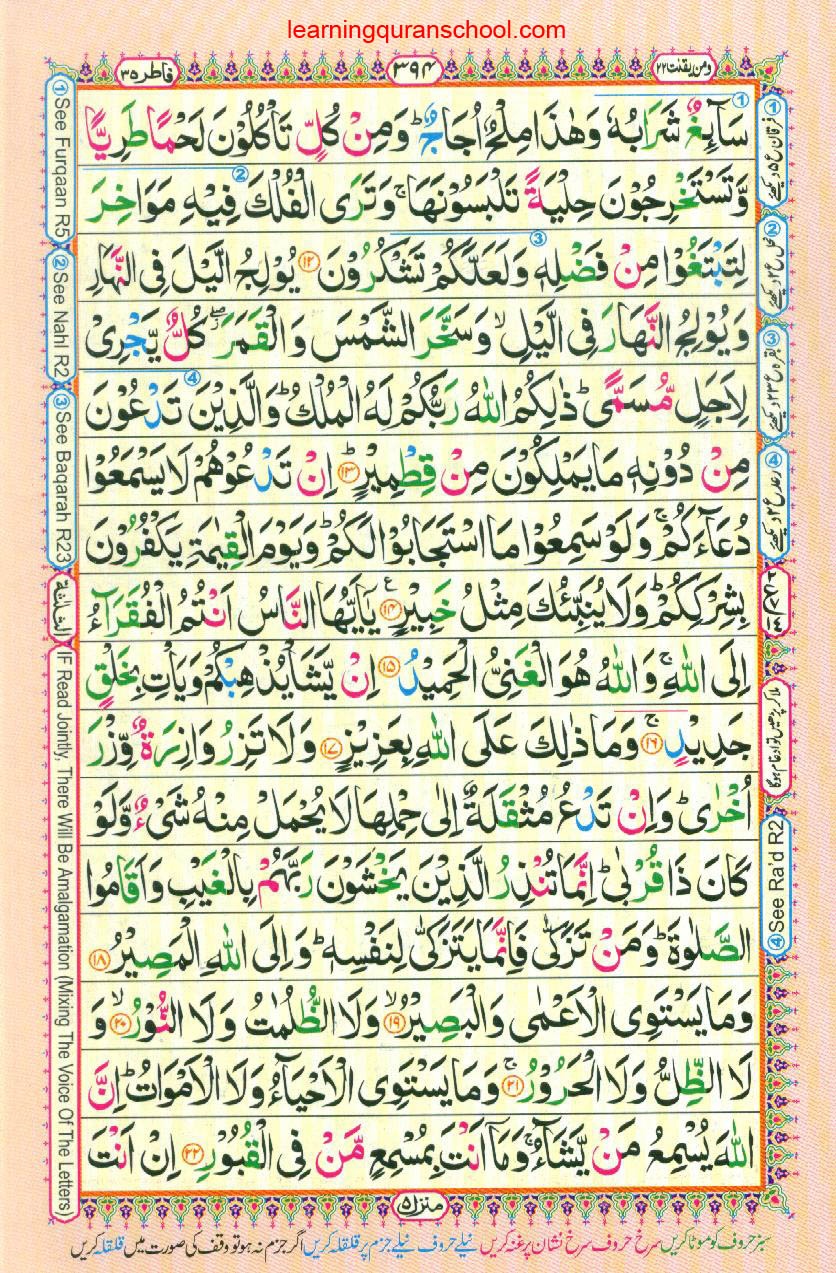 learningquranschool.com
ومن یقنت ۲۲
۳۹۴
فاطر ۳۵
سَآئِغٌ شَرَابُهٗ وَهٰذَا مِلْحٌ اُجَاجٌ ؕ وَمِنْ كُلٍّ تَاْكُلُوْنَ لَحْمًا طَرِیًّا
وَّتَسْتَخْرِجُوْنَ حِلْیَةً تَلْبَسُوْنَهَا ۚ وَتَرَی الْفُلْكَ فِیْهِ مَوَاخِرَ
لِتَبْتَغُوْا مِنْ فَضْلِهٖ وَلَعَلَّكُمْ تَشْكُرُوْنَ ۱۲ یُوْلِجُ الَّیْلَ فِی النَّهَارِ
وَیُوْلِجُ النَّهَارَ فِی الَّیْلِ ۙ وَسَخَّرَ الشَّمْسَ وَالْقَمَرَ ۖؗ كُلٌّ یَّجْرِیْ
لِاَجَلٍ مُّسَمًّی ؕ ذٰلِكُمُ اللّٰهُ رَبُّكُمْ لَهُ الْمُلْكُ ؕ وَالَّذِیْنَ تَدْعُوْنَ
مِنْ دُوْنِهٖ مَا یَمْلِكُوْنَ مِنْ قِطْمِیْرٍ ؕ ۱۳ اِنْ تَدْعُوْهُمْ لَا یَسْمَعُوْا
دُعَآءَكُمْ ۚ وَلَوْ سَمِعُوْا مَا اسْتَجَابُوْا لَكُمْ ؕ وَیَوْمَ الْقِیٰمَةِ یَكْفُرُوْنَ
بِشِرْكِكُمْ ؕ وَلَا یُنَبِّئُكَ مِثْلُ خَبِیْرٍ ۱۴ ع یٰۤاَیُّهَا النَّاسُ اَنْتُمُ الْفُقَرَآءُ
اِلَی اللّٰهِ ۚ وَاللّٰهُ هُوَ الْغَنِیُّ الْحَمِیْدُ ۱۵ اِنْ یَّشَاْ یُذْهِبْكُمْ وَیَاْتِ بِخَلْقٍ
جَدِیْدٍ ۚ ۱۶ وَمَا ذٰلِكَ عَلَی اللّٰهِ بِعَزِیْزٍ ۱۷ وَلَا تَزِرُ وَازِرَةٌ وِّزْرَ
اُخْرٰی ؕ وَاِنْ تَدْعُ مُثْقَلَةٌ اِلٰی حِمْلِهَا لَا یُحْمَلْ مِنْهُ شَیْءٌ وَّلَوْ
كَانَ ذَا قُرْبٰی ؕ اِنَّمَا تُنْذِرُ الَّذِیْنَ یَخْشَوْنَ رَبَّهُمْ بِالْغَیْبِ وَاَقَامُوا
الصَّلٰوةَ ؕ وَمَنْ تَزَكّٰی فَاِنَّمَا یَتَزَكّٰی لِنَفْسِهٖ ؕ وَاِلَی اللّٰهِ الْمَصِیْرُ ۱۸
وَمَا یَسْتَوِی الْاَعْمٰی وَالْبَصِیْرُ ۙ ۱۹ وَلَا الظُّلُمٰتُ وَلَا النُّوْرُ ۙ ۲۰ وَ
لَا الظِّلُّ وَلَا الْحَرُوْرُ ۚ ۲۱ وَمَا یَسْتَوِی الْاَحْیَآءُ وَلَا الْاَمْوَاتُ ؕ اِنَّ
اللّٰهَ یُسْمِعُ مَنْ یَّشَآءُ ۚ وَمَاۤ اَنْتَ بِمُسْمِعٍ مَّنْ فِی الْقُبُوْرِ ۲۲ اِنْ اَنْتَ
منزل ۵
سبز حروف کو موٹا کریں سرخ حروف سرخ نشان پر غنہ کریں نیلے حروف نیلے جزم پر قلقلہ کریں اگر جزم نہ ہو تو وقف کی صورت میں قلقلہ کریں
① See Furqaan R5
② See Nahl R2
③ See Baqarah R23
IF Read Jointly, There Will Be Amalgamation (Mixing The Voice Of The Letters)
① فرقان ع ۵ دیکھئے
② نحل ع ۲ دیکھئے
③ بقرہ ع ۲۳ دیکھئے
④ رعد ع ۲ دیکھئے
ملا کر پڑھیں تو ادغام ہوگا
④ See Ra'd R2